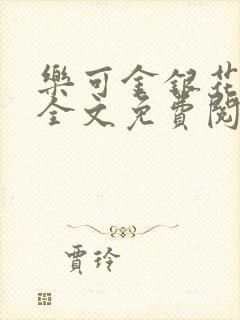 樂可金銀花
全文免費閱
賈玲